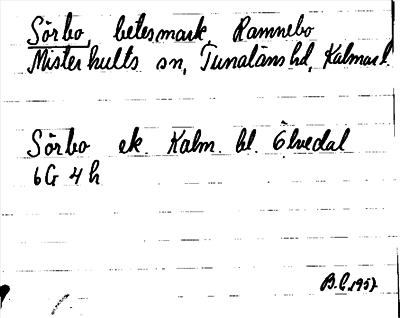 Sörbo, betesmark, Ramnebo
Misterhults sn, Tunaläns hd, Kalmar l
Sörbo ek. Kalm. bl. Ölvedal
6G 4h
B.C. 1957